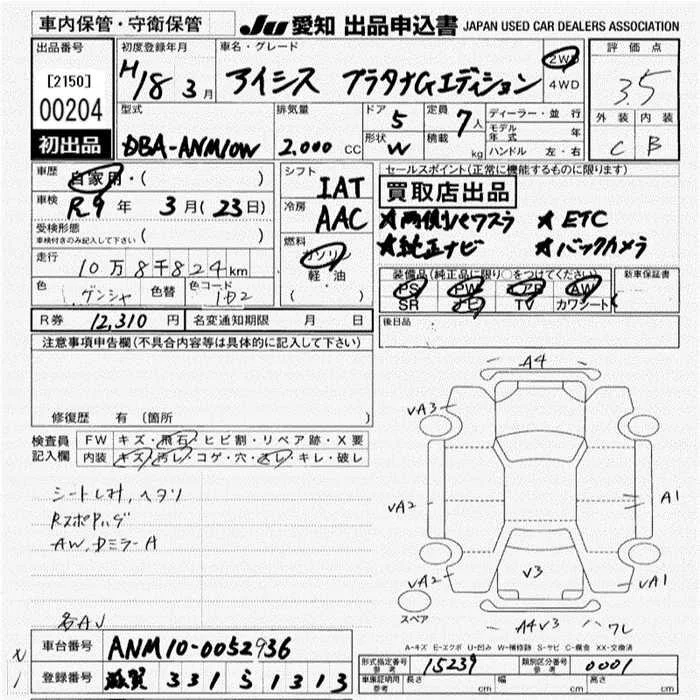 車内保管・守衛保管
JU 愛知 出品申込書 JAPAN USED CAR DEALERS ASSOCIATION
出品番号 初度登録年月 車名・グレード 2WD 評価点
[2150] H18 3月 アイシス プラタナGエディション 4WD 3.5
00204 外装 内装
初出品 C B
型式 排気量 ドア 5 定員 7人 ディーラー・並行
DBA-ANM10W 2.000 CC 形状 W 積載 kg モデル年式 年
ハンドル 左・右
車歴 自家用・( ) シフト IAT セールスポイント(正常に機能するものに限ります)
買取店出品
車検 R9年 3月(23日) 冷房 AAC ★両側パワスラ ★ETC
受検形態 ( ) ★純正ナビ ★バックカメラ
車検付きのみ記入して下さい
燃料 ガソリン 軽・油 ( )
走行 10万8千824km
装備品(純正品に限り○をつけてください) 新車保証書
色 ゲンシャ 色替 色コード 1D2 PS PW エアB AW
SR ナビ TV カワシート
R券 12,310 円 名変通知期限 月 日 後日品
注意事項申告欄(不具合内容等は具体的に記入して下さい)
修復歴 有 (箇所 )
検査員記入欄 FW キズ・飛石・ヒビ割・リペア跡・X要
内装 キズ・汚レ・コゲ・穴・スレ・キレ・破レ
AW、Dミラー A
A4
VA3
VA2
A1
VA2
V3
VA1
スペア
A4V3 ワレ
A-キズ E-エクボ U-凹み W-補修跡 S-サビ C-腐食 XX-交換済
車台番号 ANM10-0052936
登録番号 滋賀 331 ら 1313
型式指定番号 参考 15239 類別区分番号 参考 0001
車庫証明用 参考 長さ cm 幅 cm 高さ cm